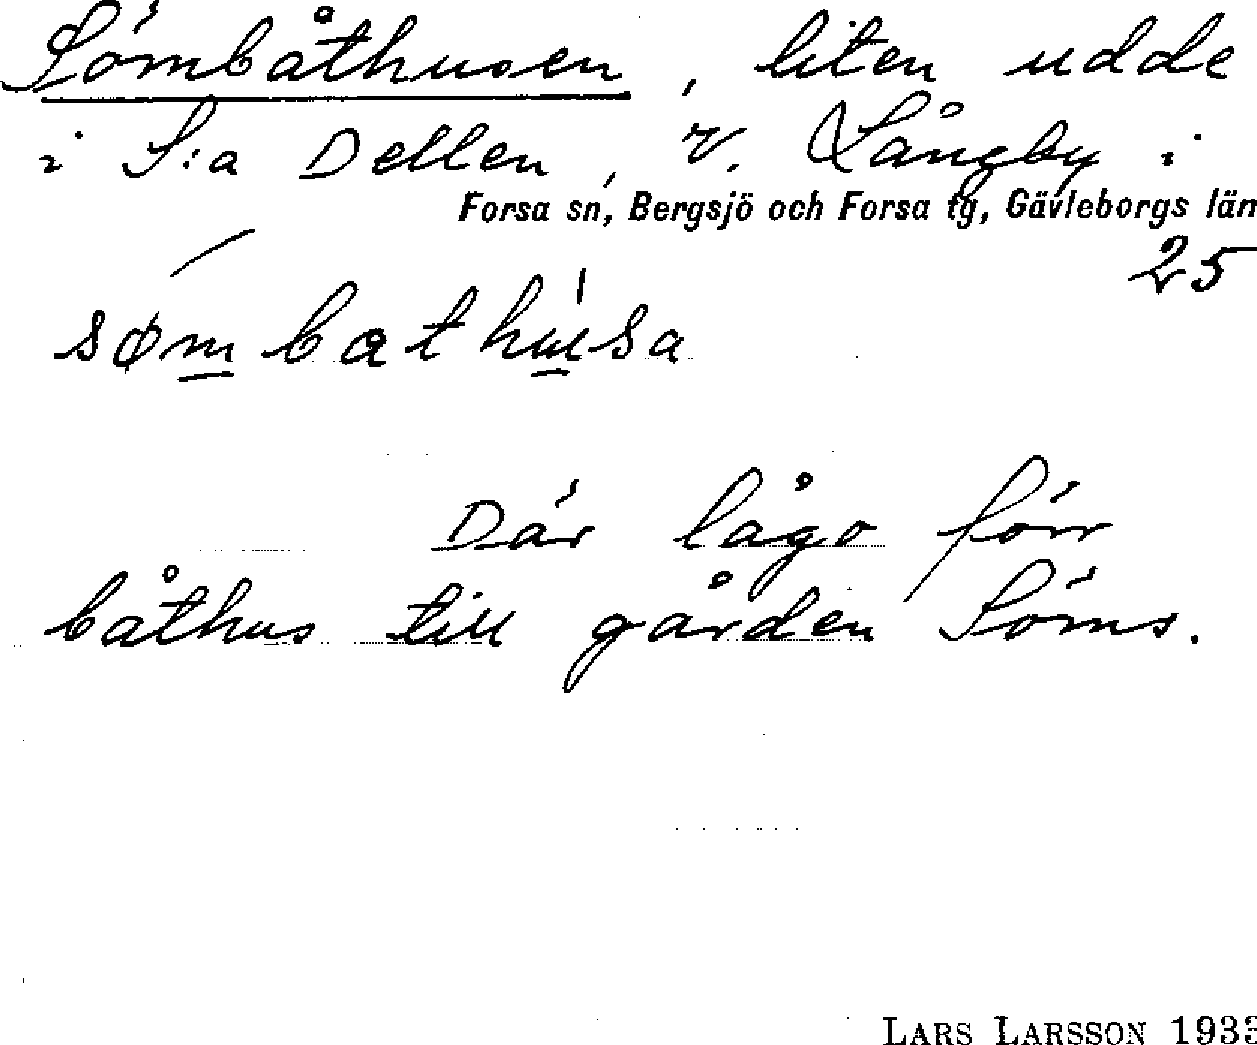 Sömbåthusen, liten udde
i S:a Dellen, v. Långby i
Forsa sn, Bergsjö och Forsa tg, Gävleborgs län
25
Där lågo förr
båthus till gården Söms.
LARS LARSSON 193